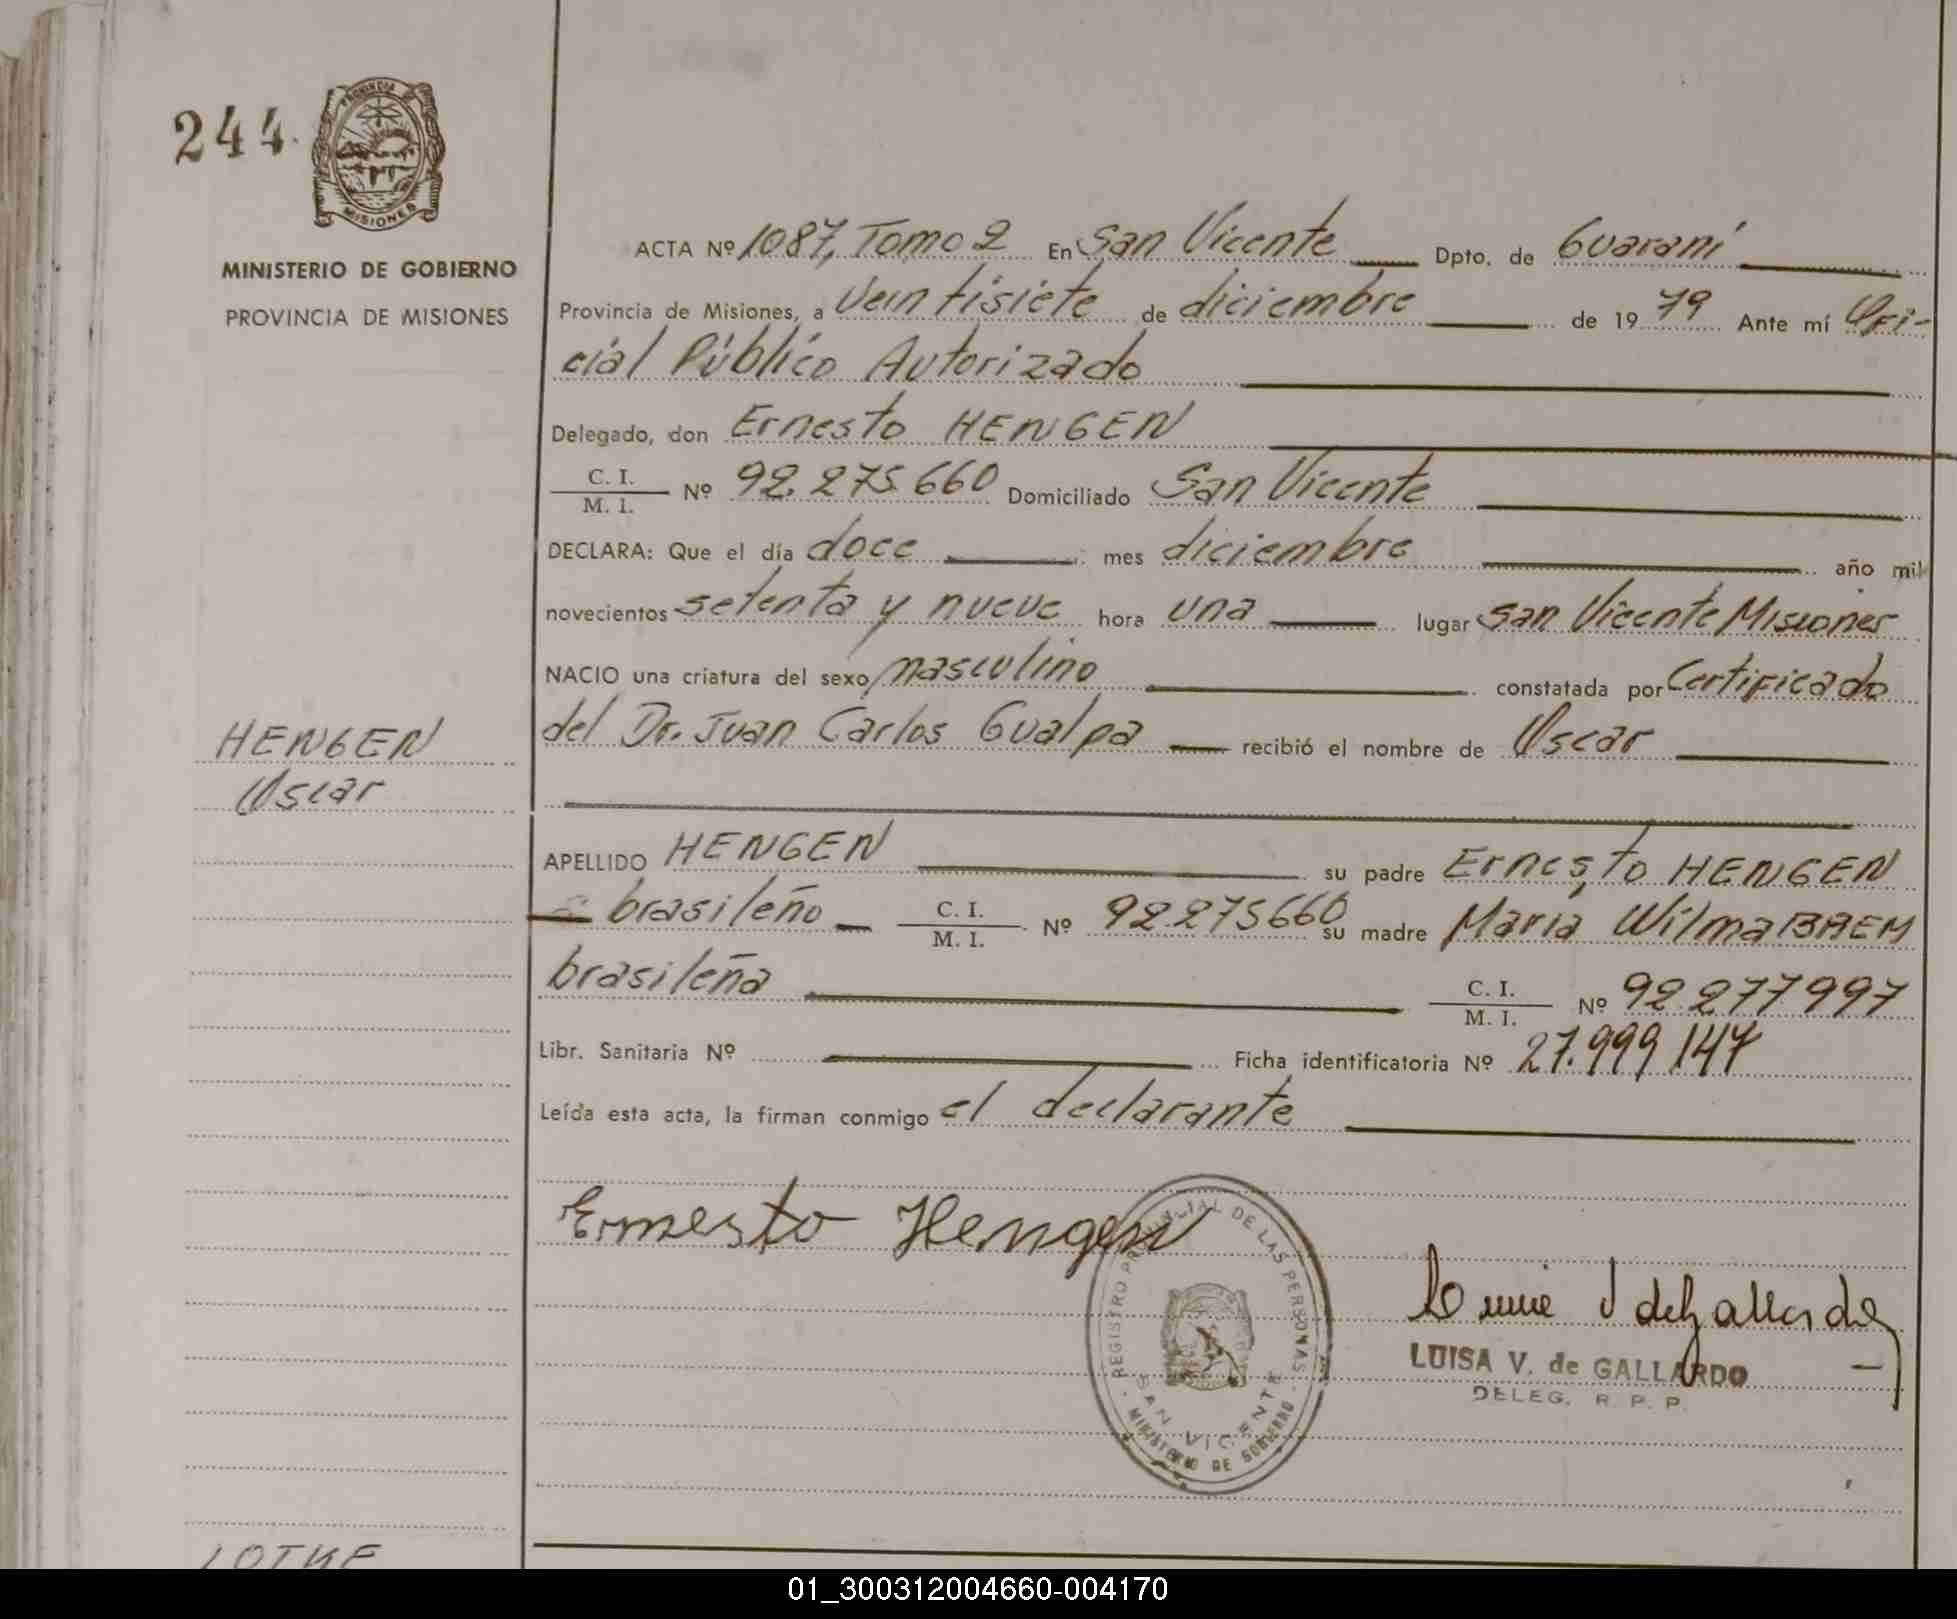 244.
PROVINCIA DE
MISIONES
MINISTERIO DE GOBIERNO
PROVINCIA DE MISIONES
ACTA Nº 1087, Tomo 2 En San Vicente Dpto. de Guaraní
Provincia de Misiones, a Veintisiete de diciembre de 1979 Ante mí Ofi-
cial Público Autorizado
Delegado, don Ernesto HENGEN
C. I.
M. I. Nº 92.275.660 Domiciliado San Vicente
DECLARA: Que el día doce mes diciembre año mil
novecientos setenta y nueve hora una lugar San Vicente Misiones
NACIO una criatura del sexo masculino constatada por Certificado
del Dr. Juan Carlos Gualpa recibió el nombre de Oscar
HENGEN
Oscar
APELLIDO HENGEN su padre Ernesto HENGEN
brasileño C. I.
M. I. Nº 92.275660 su madre Maria Wilma BAEM
brasileña C. I.
M. I. Nº 92.277997
Libr. Sanitaria Nº Ficha identificatoria Nº 27.999.147
Leída esta acta, la firman conmigo el declarante
Ernesto Hengen
REGISTRO PROVINCIAL DE LAS PERSONAS
SAN VICENTE
MINISTERIO DE GOBIERNO
LUISA V. de GALLARDO
DELEG. R. P. P.
01_300312004660-004170